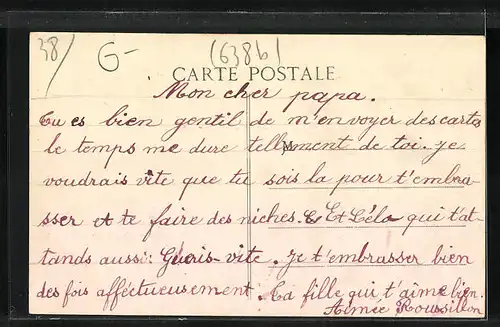 38/ G- (638b)
CARTE POSTALE
Mon cher papa.
Tu es bien gentil de m'envoyer des cartes
le temps me dure tellement de toi. je
voudrais vite que tu sois la pour t'embra-
sser et te faire des niches. Et Léla qui t'at-
tands aussi: Guéris-vite. Je t'embrasser bien
des fois afféctueusement. Ta fille qui t'aime bien.
Aimée Roussillon